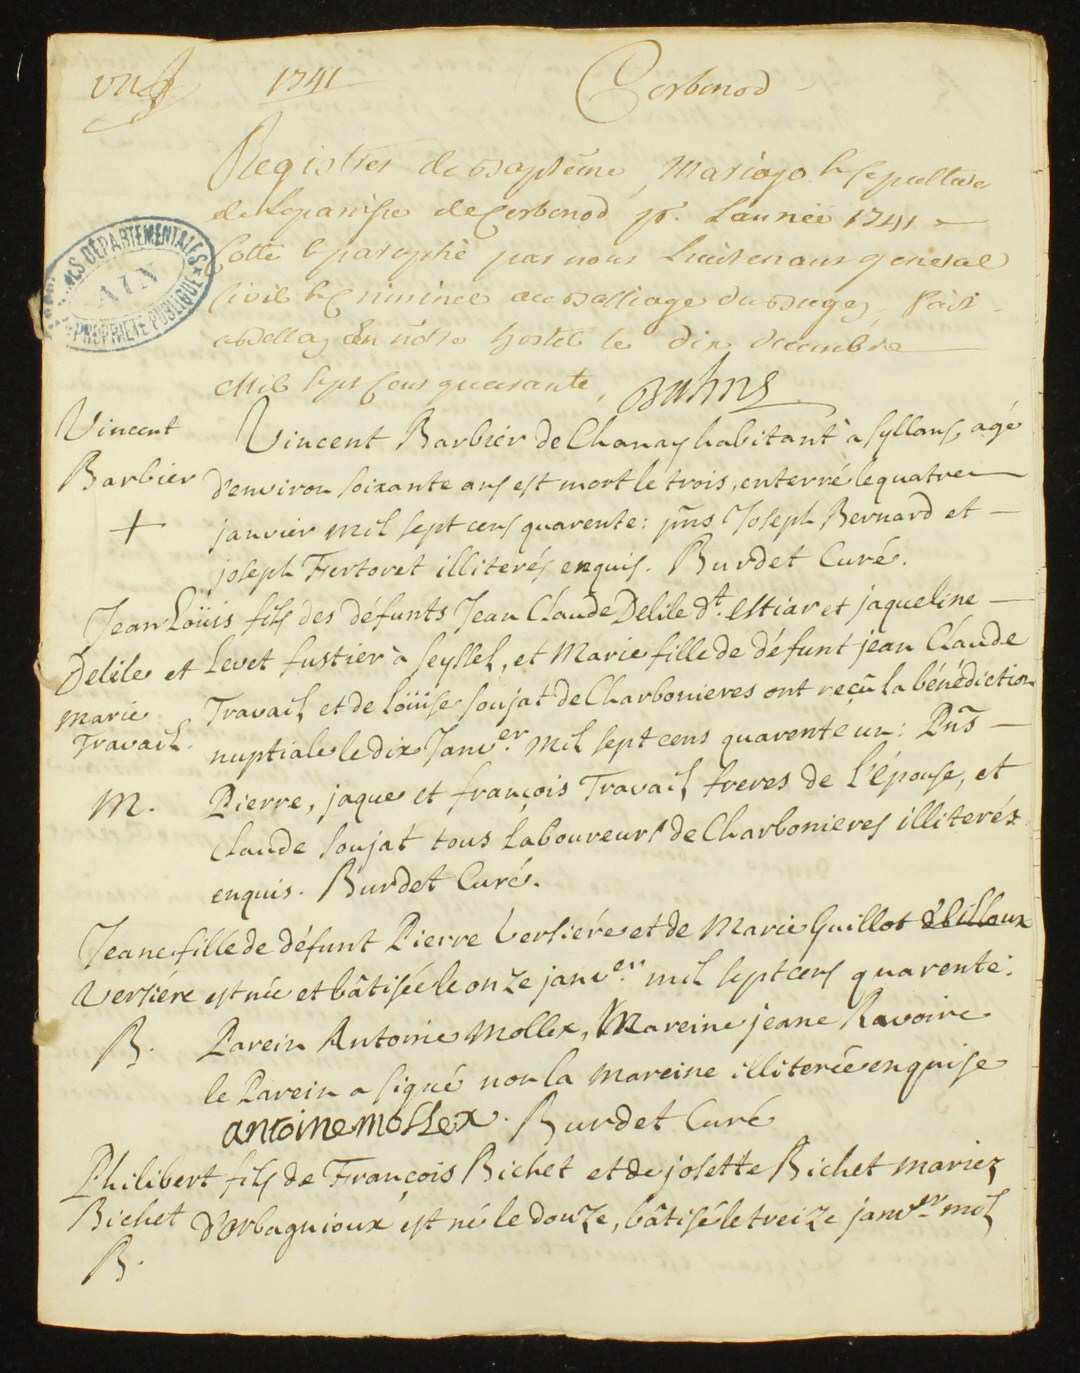 1741
Corbonod
Registres de Baptême, Mariage & sepulture
de la paroisse de Corbonod pr. L'année 1741
Cotté & paraphé par nous Lieutenant general
Civil & Criminel au Balliage du Bugey, fait
a Belley En nôtre hostel le dix decembre
Mil sept Cent quarante,
ARCHIVES DÉPARTEMENTALES
AIN
PROPRIÉTÉ PUBLIQUE
Vincent Vincent Barbier de Chanay habitant à syllans, agé
Barbier d'environ soixante ans est mort le trois, enterré le quatre
+ janvier mil sept cens quarente: pñs Joseph Bernard et
joseph Fertoret illiterés enquis. Burdet Curé.
Jean Loüis fils des défunts Jean Claude Delile dt. Estiar et jaqueline
Delile et Levet fustier à seyssel, et Marie fille de défunt jean Claude
marie Travail et de loüise soujat de Charbonieres ont reçû la bénédiction
Travail. nuptiale le dix Janver. mil sept cens quarente un: Pñs
M. Pierre, jaque et françois Travail freres de l'épouse, et
claude soujat tous laboureurs de Charbonieres illiterés
enquis. Burdet Curé.
Jeane fille de défunt Pierre Versiére et de Marie Guillot
Versiére est née et bâtisée le onze janver. mil sept cens quarente:
B. Parein Antoine Mollex, Mareine jeane Ravoire
le Parein a signé non la mareine illiterée enquise
antoine mollex. Burdet Curé
Philibert fils de François Bichet et de josette Bichet mariez
Bichet d'Orbagnioux est né le douze, bâtisé le treize janver mil
B.